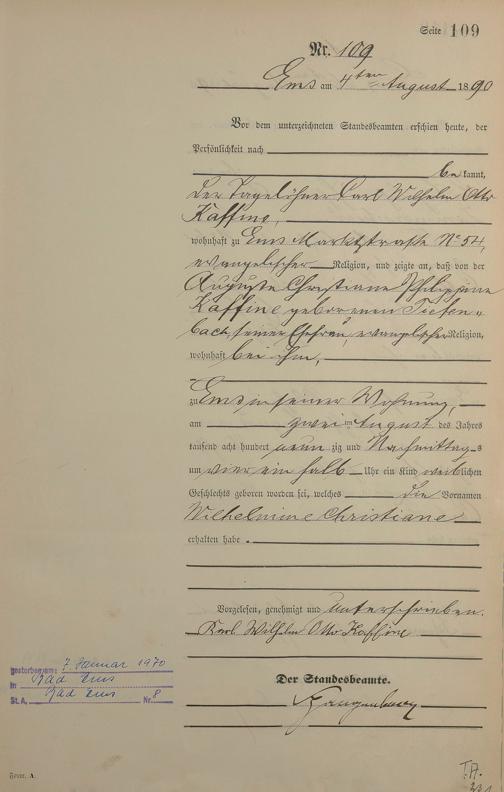 Seite 109
Nr. 109
Ems am 4ten August 1890
Vor dem unterzeichneten Standesbeamten erschien heute, der
Persönlichkeit nach
bekannt,
der Tagelöhner Carl Wilhelm Otto
Kaffine,
wohnhaft zu Ems Marktstraße No 54,
evangelischer Religion, und zeigte an, daß von der
Auguste Christiane Philippine
Kaffine geborenen Tiefen-
bach, seiner Ehefrau, evangelischer Religion,
wohnhaft bei ihm,
zu Ems in seiner Wohnung,
am zwei ten August des Jahres
tausend acht hundert neun zig und Nachmittags
um vier ein halb Uhr ein Kind weiblichen
Geschlechts geboren worden sei, welches die Vornamen
Wilhelmine Christiane
erhalten habe.
Vorgelesen, genehmigt und unterschrieben.
Karl Wilhelm Otto Kaffine
Der Standesbeamte.
gestorben am: 7. Januar 1970
in Bad Ems
St. A. Bad Ems Nr. 8
Form. A.